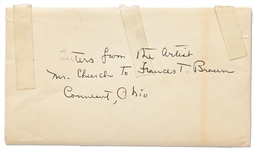 Letters from the Artist
Mr. Church to Frances T. Brown
Conneaut, Ohio